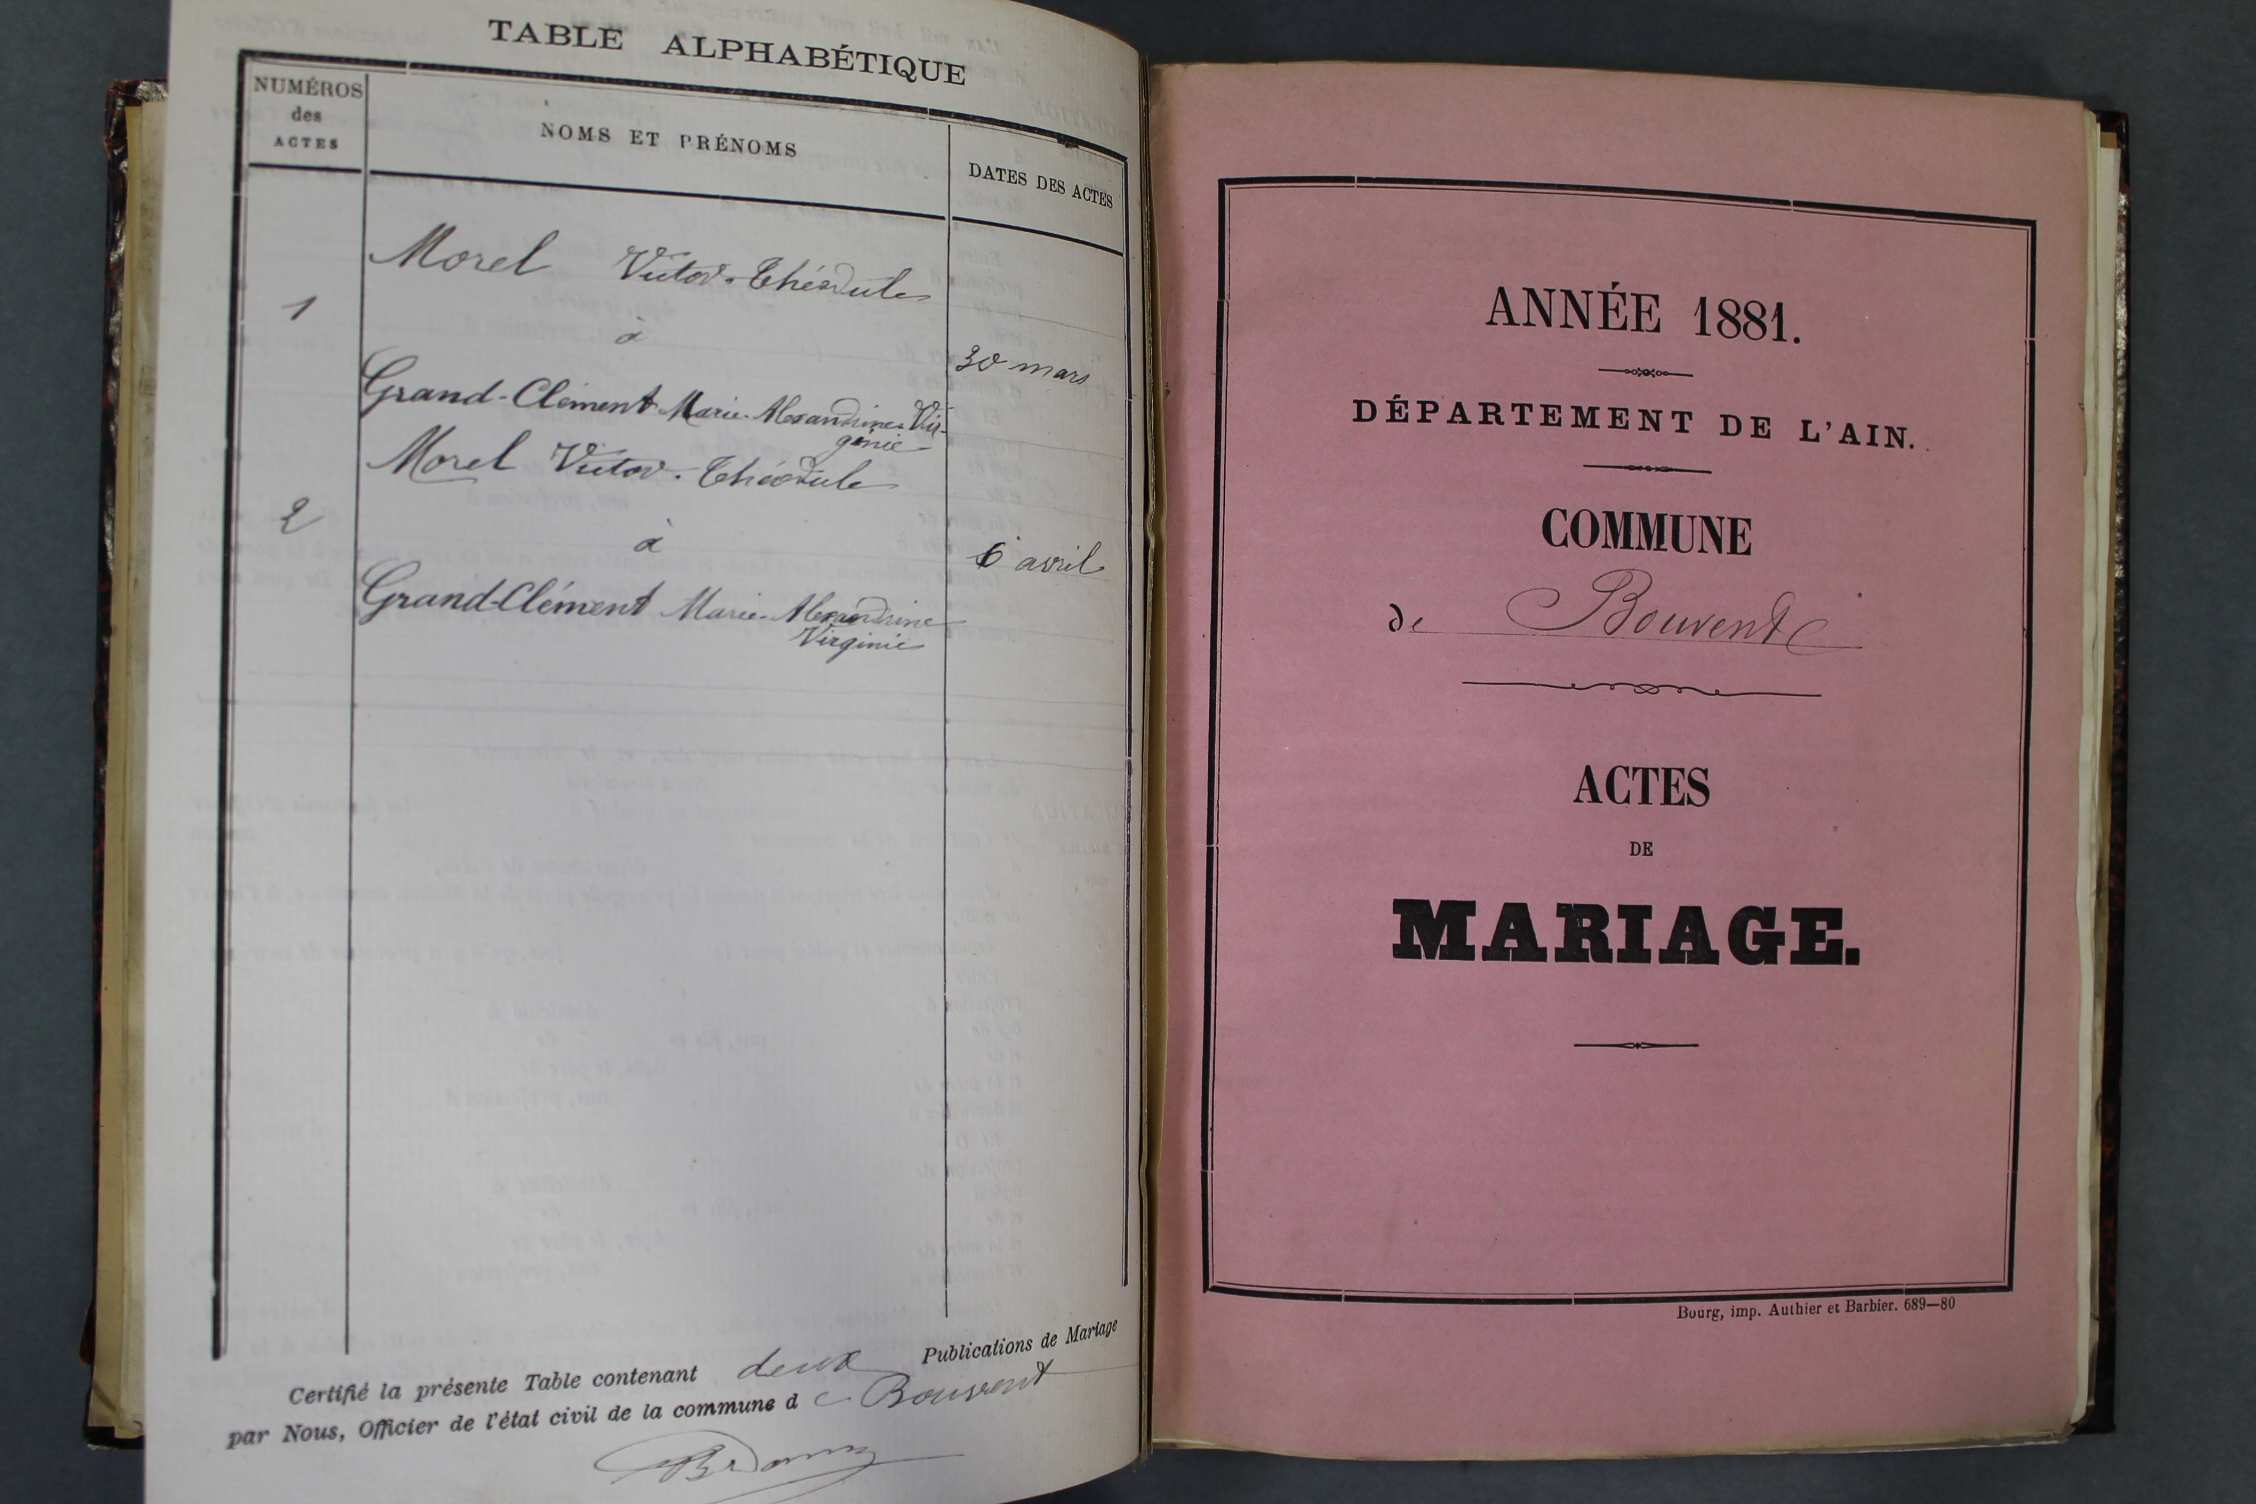 TABLE ALPHABÉTIQUE
NUMÉROS
des
ACTES
NOMS ET PRÉNOMS
DATES DES ACTES
Morel Victor-Théodule
1
à
30 mars
Grand-Clément Marie-Alexandrine Vir-
ginie
Morel Victor-Théodule
2
à
6 avril
Grand-Clément Marie-Alexandrine
Virginie
Certifié la présente Table contenant deux Publications de Mariage
par Nous, Officier de l'état civil de la commune de Bouvent
ANNÉE 1881.
DÉPARTEMENT DE L'AIN.
COMMUNE
de Bouvent
ACTES
DE
MARIAGE.
Bourg, imp. Authier et Barbier. 689—80